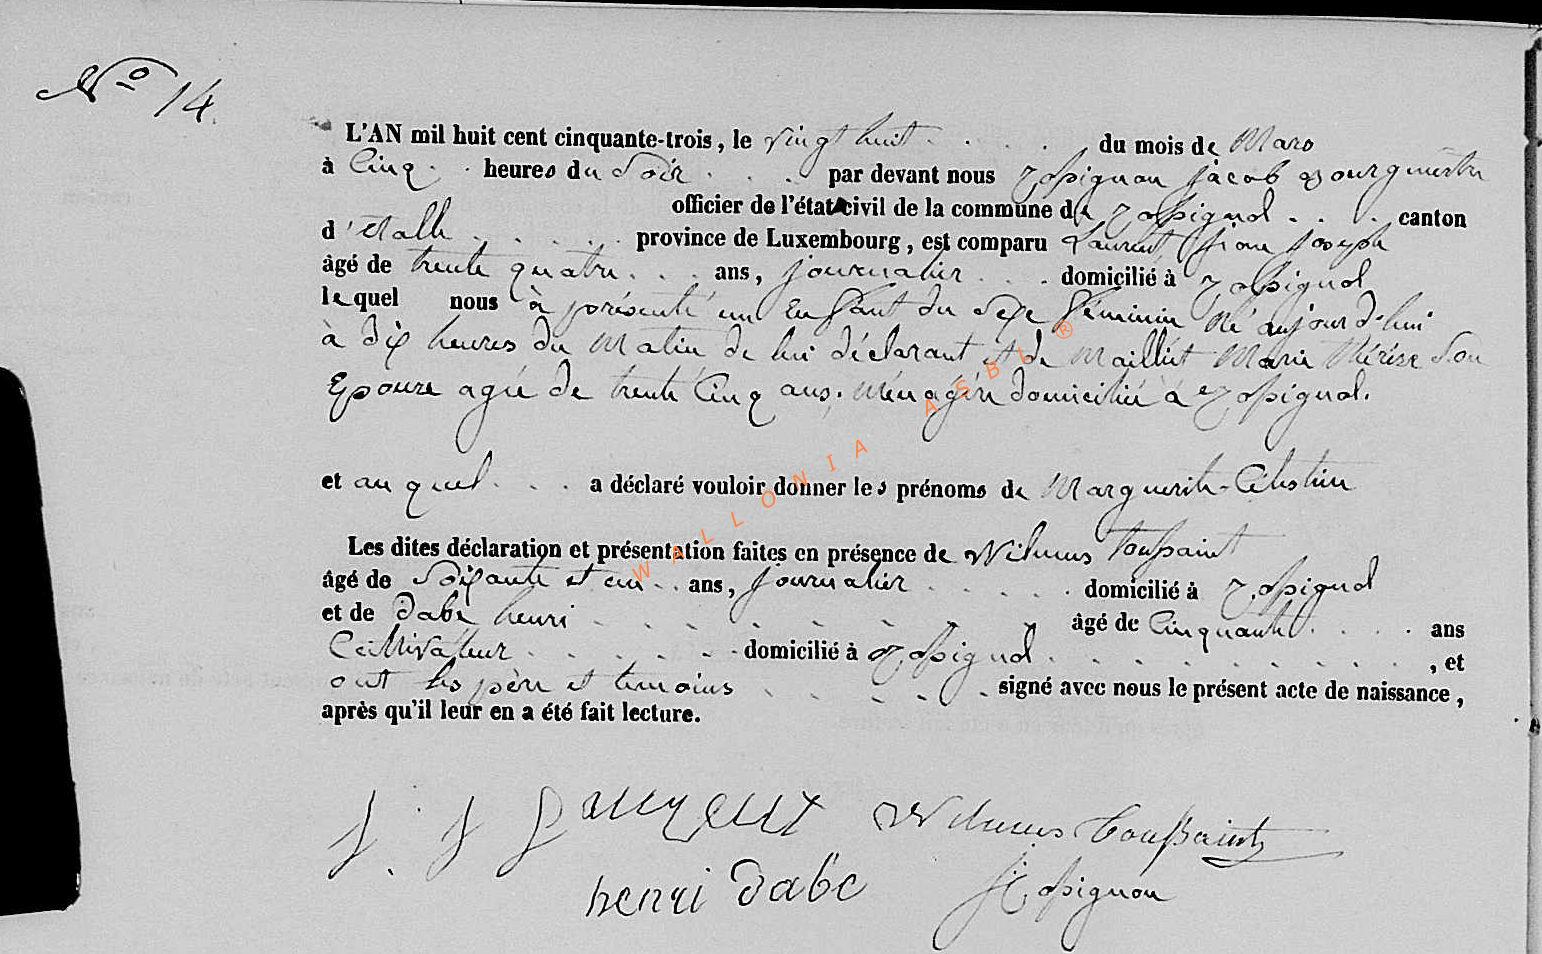 No 14.
L'AN mil huit cent cinquante-trois, le vingt huit . . . . du mois de Mars
à Cinq . . heures du Soir . . . par devant nous Rossignon jacob Bourgmestre
officier de l'état civil de la commune de Rossignol . . . canton
d'Etalle . . . . . province de Luxembourg, est comparu Laurent jean joseph
âgé de trente quatre . . . ans, journalier . . . domicilié à Rossignol
lequel nous à présenté un Enfant du Sexe féminin Né aujourd'hui
à dix heures du Matin de lui déclarant et de Maillût Marie Thérèse Son
Epouse agée de trente Cinq ans. Ménagère domiciliée à Rossignol.
et au quel . . . a déclaré vouloir donner les prénoms de Marguerite-Célestine
Les dites déclaration et présentation faites en présence de Wilmus Toussaint
âgé de Soixante et un . . ans, journalier . . . . . domicilié à Rossignol
et de Dabe henri . . . . . . . . âgé de Cinquante . . . . ans
Cultivateur . . . . . . domicilié à Rossignol . . . . . . . . . . , et
ont les père et temoins . . . . . signé avec nous le présent acte de naissance,
après qu'il leur en a été fait lecture.
j. j Laurent Wilmus Toussaint
henri Dabe J Rossignon
WALLONIA ASBL ®